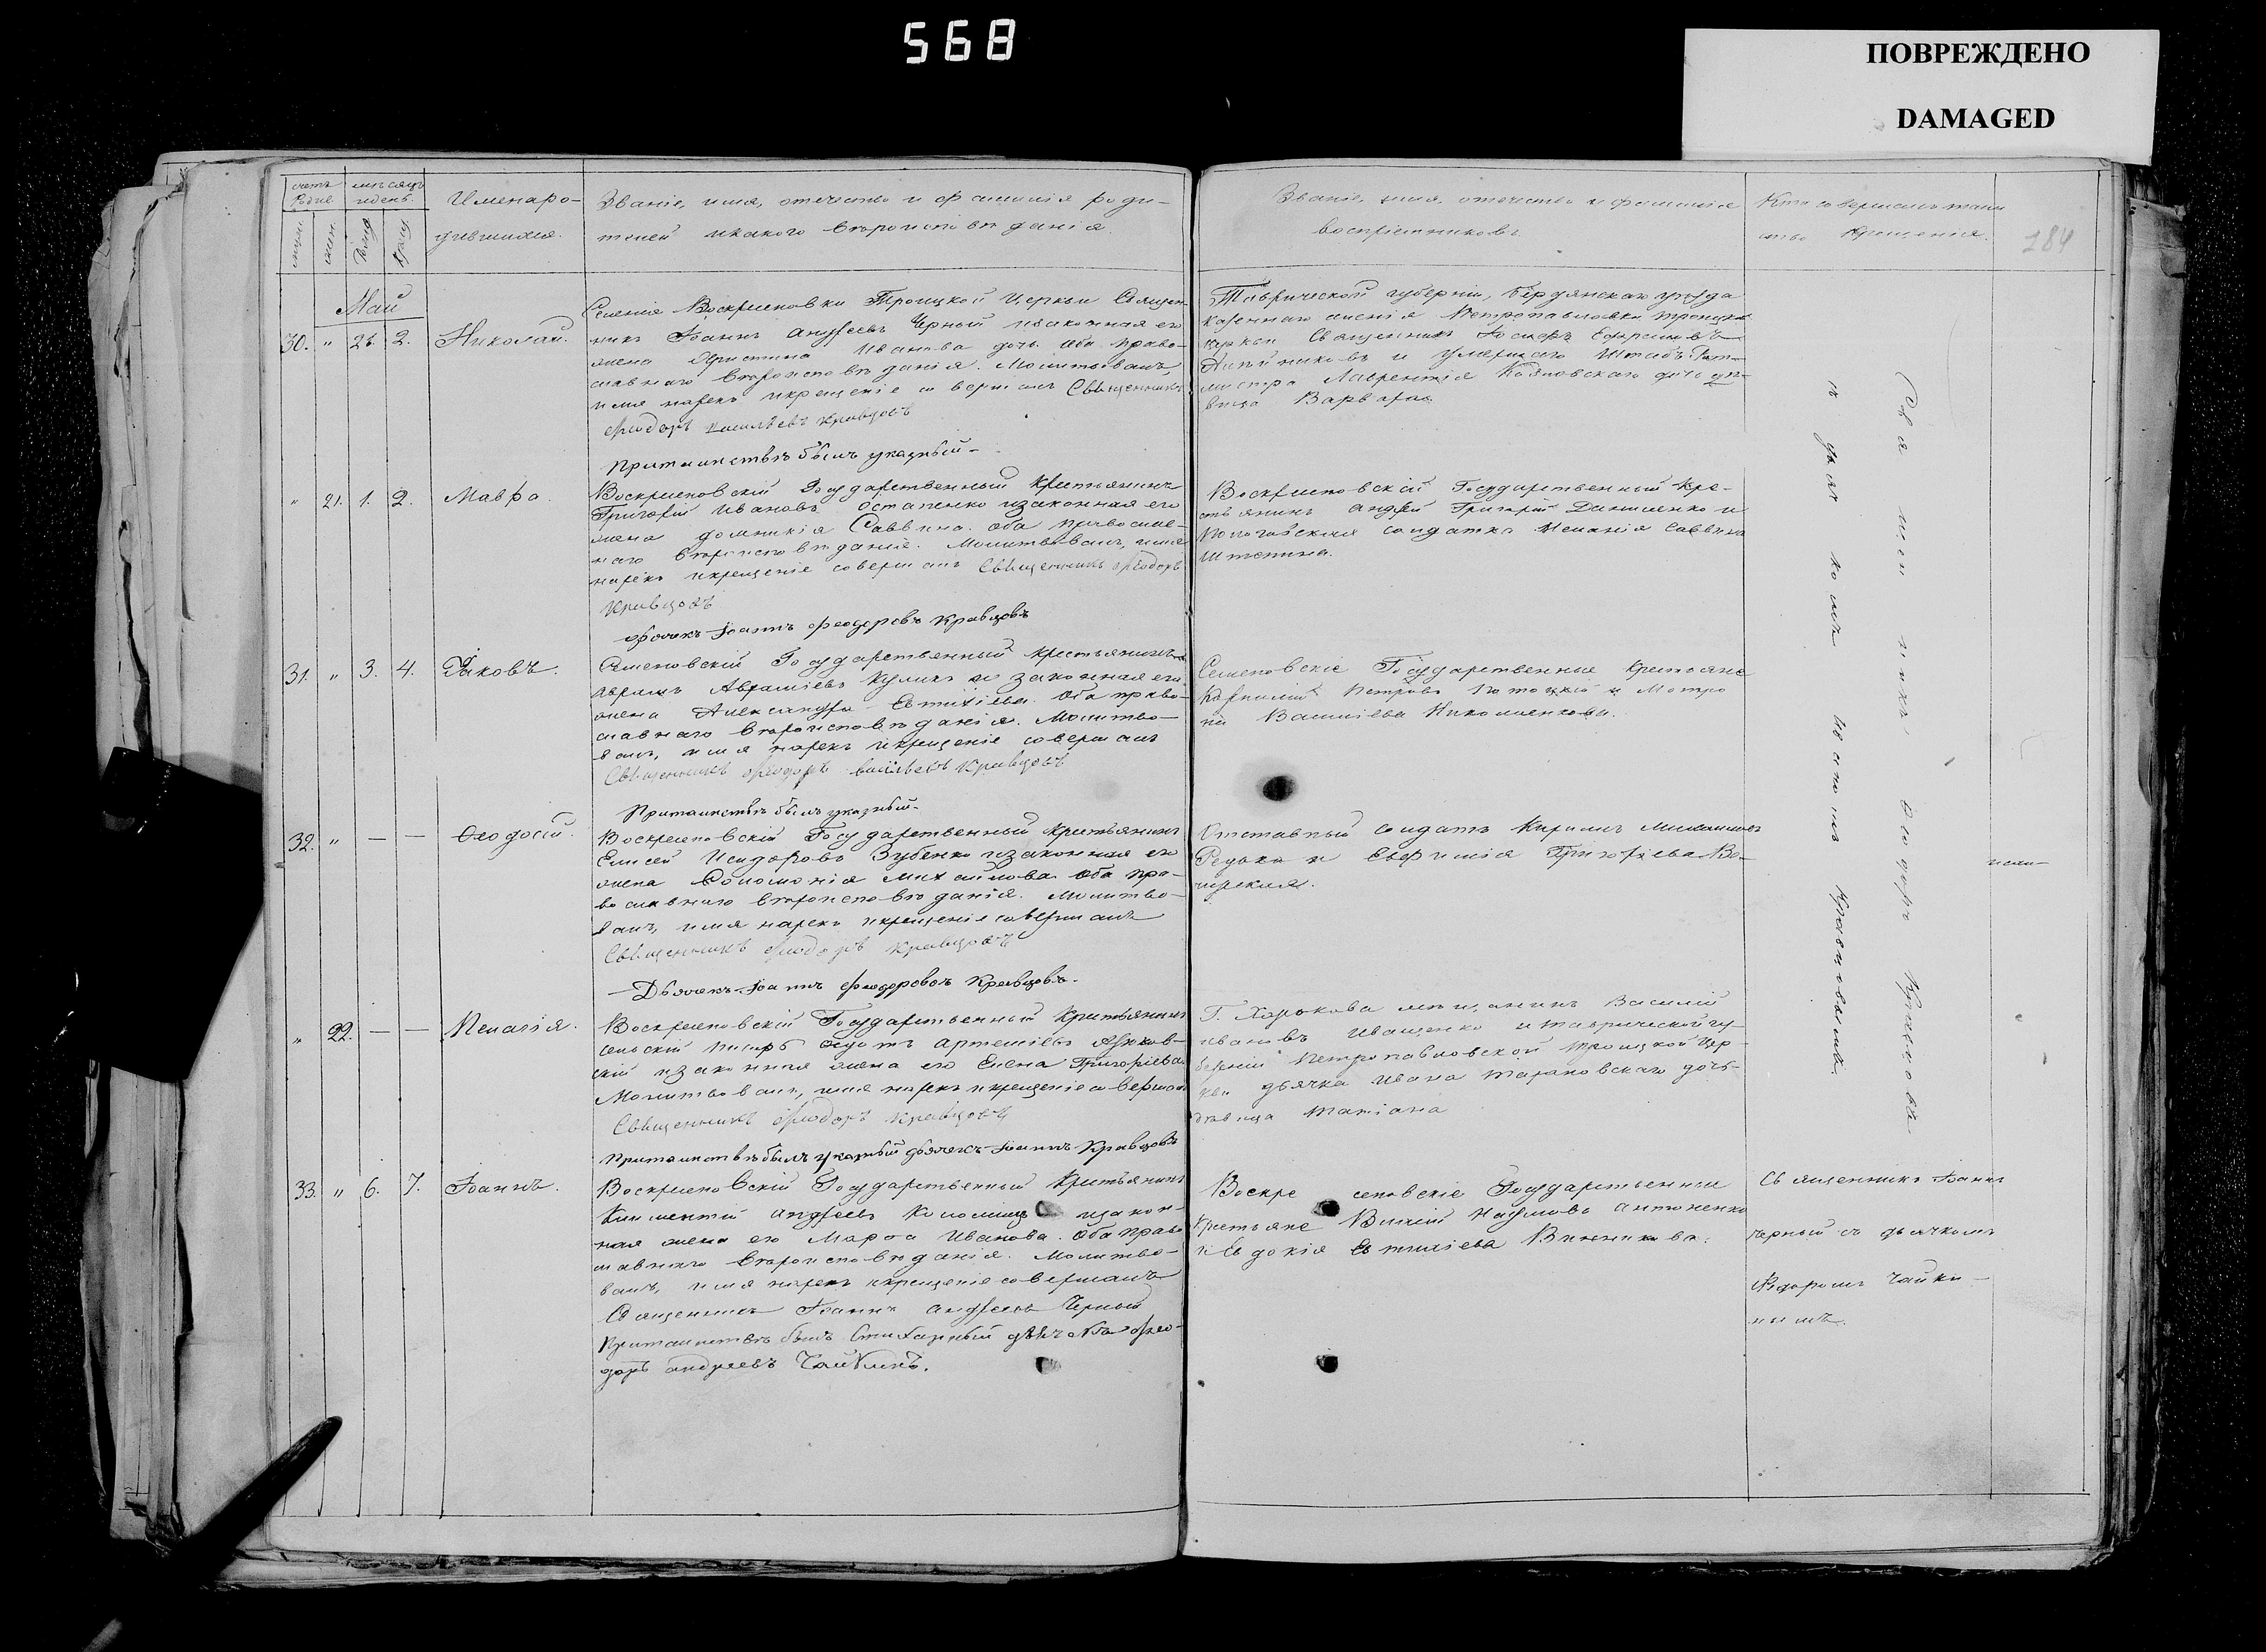 568
ПОВРЕЖДЕНО
DAMAGED
счетъ родив. мѣсяцъ и день.
Имена ро-
дившихся.
Званіе, имя, отчество и фамилія роди-
телей и какого вѣроисповѣданія.
Званіе, имя, отчество и фамилія
воспріемниковъ.
Кто совершалъ таин
ство крещенія.
184
Май
30. " 2. Николай.
Селенія Воскресеновки Троицкой Церкви Священ-
никъ Іоаннъ Андреевъ Черный и законная его
жена Христина Иванова дочь. Оба право-
славнаго вѣроисповѣданія. Молитвовалъ
имя нарекъ и крещеніе совершалъ Священникъ
Ѳеодоръ Васильевъ Кравцовъ
При таинствѣ былъ указный-
Таврической губерніи, Бердянскаго уѣзда
казеннаго имѣнія Петропавловки Троицкой
церкви Священникъ Іосифъ Ефремовъ
и умершаго Штабъ-Рот-
мистра Лаврентія дочь дѣ-
вица Варвара
" 21. 1. 2. Мавра.
Воскресеновскій Государственный Крестьянинъ
Григорій Ивановъ Остапенко и законная его
жена Домникія Саввина. Оба православ-
наго вѣроисповѣданія. Молитвовалъ, имя
нарекъ и крещеніе совершалъ Священникъ Ѳеодоръ
Кравцовъ
дьячекъ Іоаннъ Ѳеодоровъ Кравцовъ
Воскресеновскій Государственный Кре-
стьянинъ Андрей Григорій Данишенко и
солдатка Меланія Саввина
31. " 3. 4. Іаковъ.
Семеновскій Государственный Крестьянинъ
Аврамъ Аврамиевъ Куликъ и законная его
жена Александра Евтихіева. Оба право-
славнаго вѣроисповѣданія. Молитво-
валъ, имя нарекъ и крещеніе совершалъ
Священникъ Ѳеодоръ Васильевъ Кравцовъ
При таинствѣ былъ указный-
Семеновскіе Государственные Крестьяне
Корнилій Петровъ Потоцкій и Матро
на Василіева Николаенкова.
32. " — — Ѳеодосій.
Воскресеновскій Государственный Крестьянинъ
Елисей Исидоровъ Зубенко и законная его
жена Соломонія Михайлова. Оба пра-
вославнаго вѣроисповѣданія. Молитво-
валъ, имя нарекъ и крещеніе совершалъ
Священникъ Ѳеодоръ Кравцовъ
—Дьячекъ Іоаннъ Ѳеодоровъ Кравцовъ.
Отставный солдатъ Кирилъ Михайловъ
Редька и Евфимія Григоріева
" 22. — — Пелагія.
Воскресеновскій Государственный Крестьянинъ
сельскій писарь Ѳедотъ Артеміевъ
и законная жена его Елена Григоріева
Молитвовалъ, имя нарекъ и крещеніе совершалъ
Священникъ Ѳеодоръ Кравцовъ
При таинствѣ былъ указный дьячекъ Іоаннъ Кравцовъ
Г. Харькова мѣщанинъ Василій
Ивановъ Иващенко и Таврической гу-
берніи Петропавловской Троицкой Цер-
кви дьячка Ивана Тарановскаго дочь
дѣвица Татіана
33. " 6. 7. Іоаннъ.
Воскресеновскій Государственный Крестьянинъ
Климентій Андреевъ Коломіец и закон-
ная жена его Марѳа Иванова. Оба право-
славнаго вѣроисповѣданія. Молитво-
валъ, имя нарекъ и крещеніе совершалъ
Священникъ Іоаннъ Андреевъ Черный
При таинствѣ былъ Стихарный дьячекъ Ѳео-
доръ Андреевъ Чайкинъ.
Воскресеновскіе Государственные
Крестьяне Наумовъ Антоненко
и Евдокія Евтихіева Винникова.
Священникъ Іоаннъ
Черный съ дьячкомъ
Ѳедоромъ Чайки-
нымъ.
Священникъ Ѳеодоръ Кравцовъ
съ дьячкомъ Иваномъ Кравцовымъ.